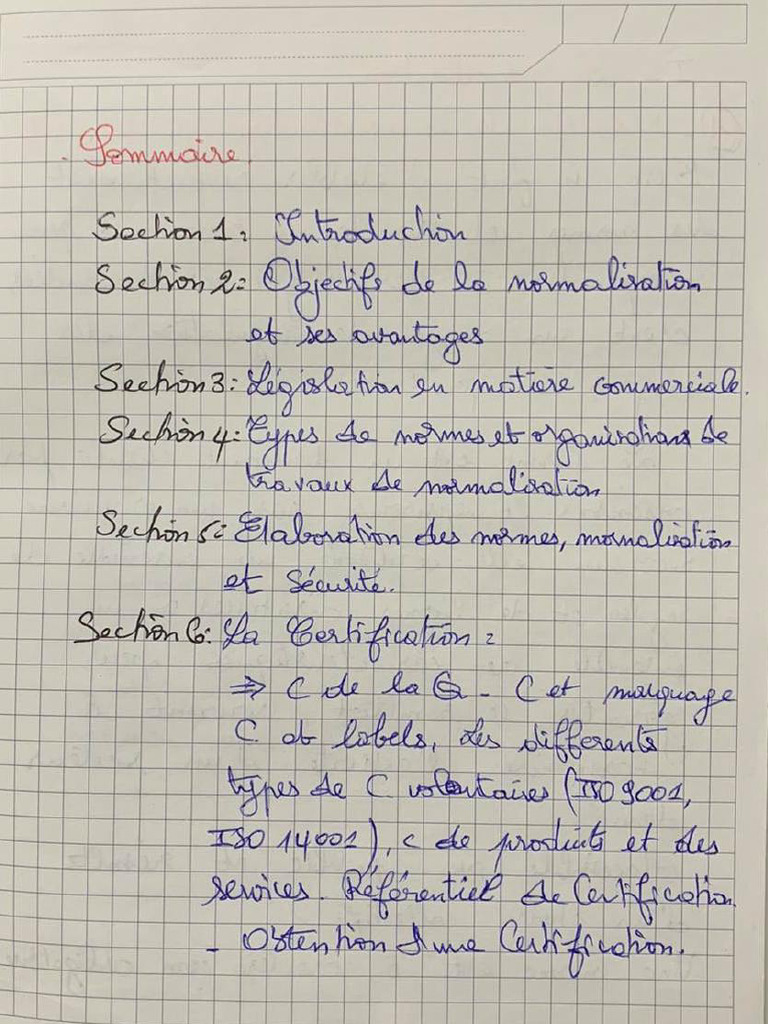 Sommaire.
Section 1: Introduction
Section 2: Objectifs de la normalisation
et ses avantages
Section 3: Législation en matière commerciale.
Section 4: Types de normes et organisations de
travaux de normalisation
Section 5: Elaboration des normes, mornalisation
et sécurité.
Section 6: La Certification :
⇒ C de la Q - C et marquage
C et labels, les différents
types de C volontaires (ISO 9001,
ISO 14001), c de produits et des
services. Référentiel de Certification.
- Obtention d'une Certification.